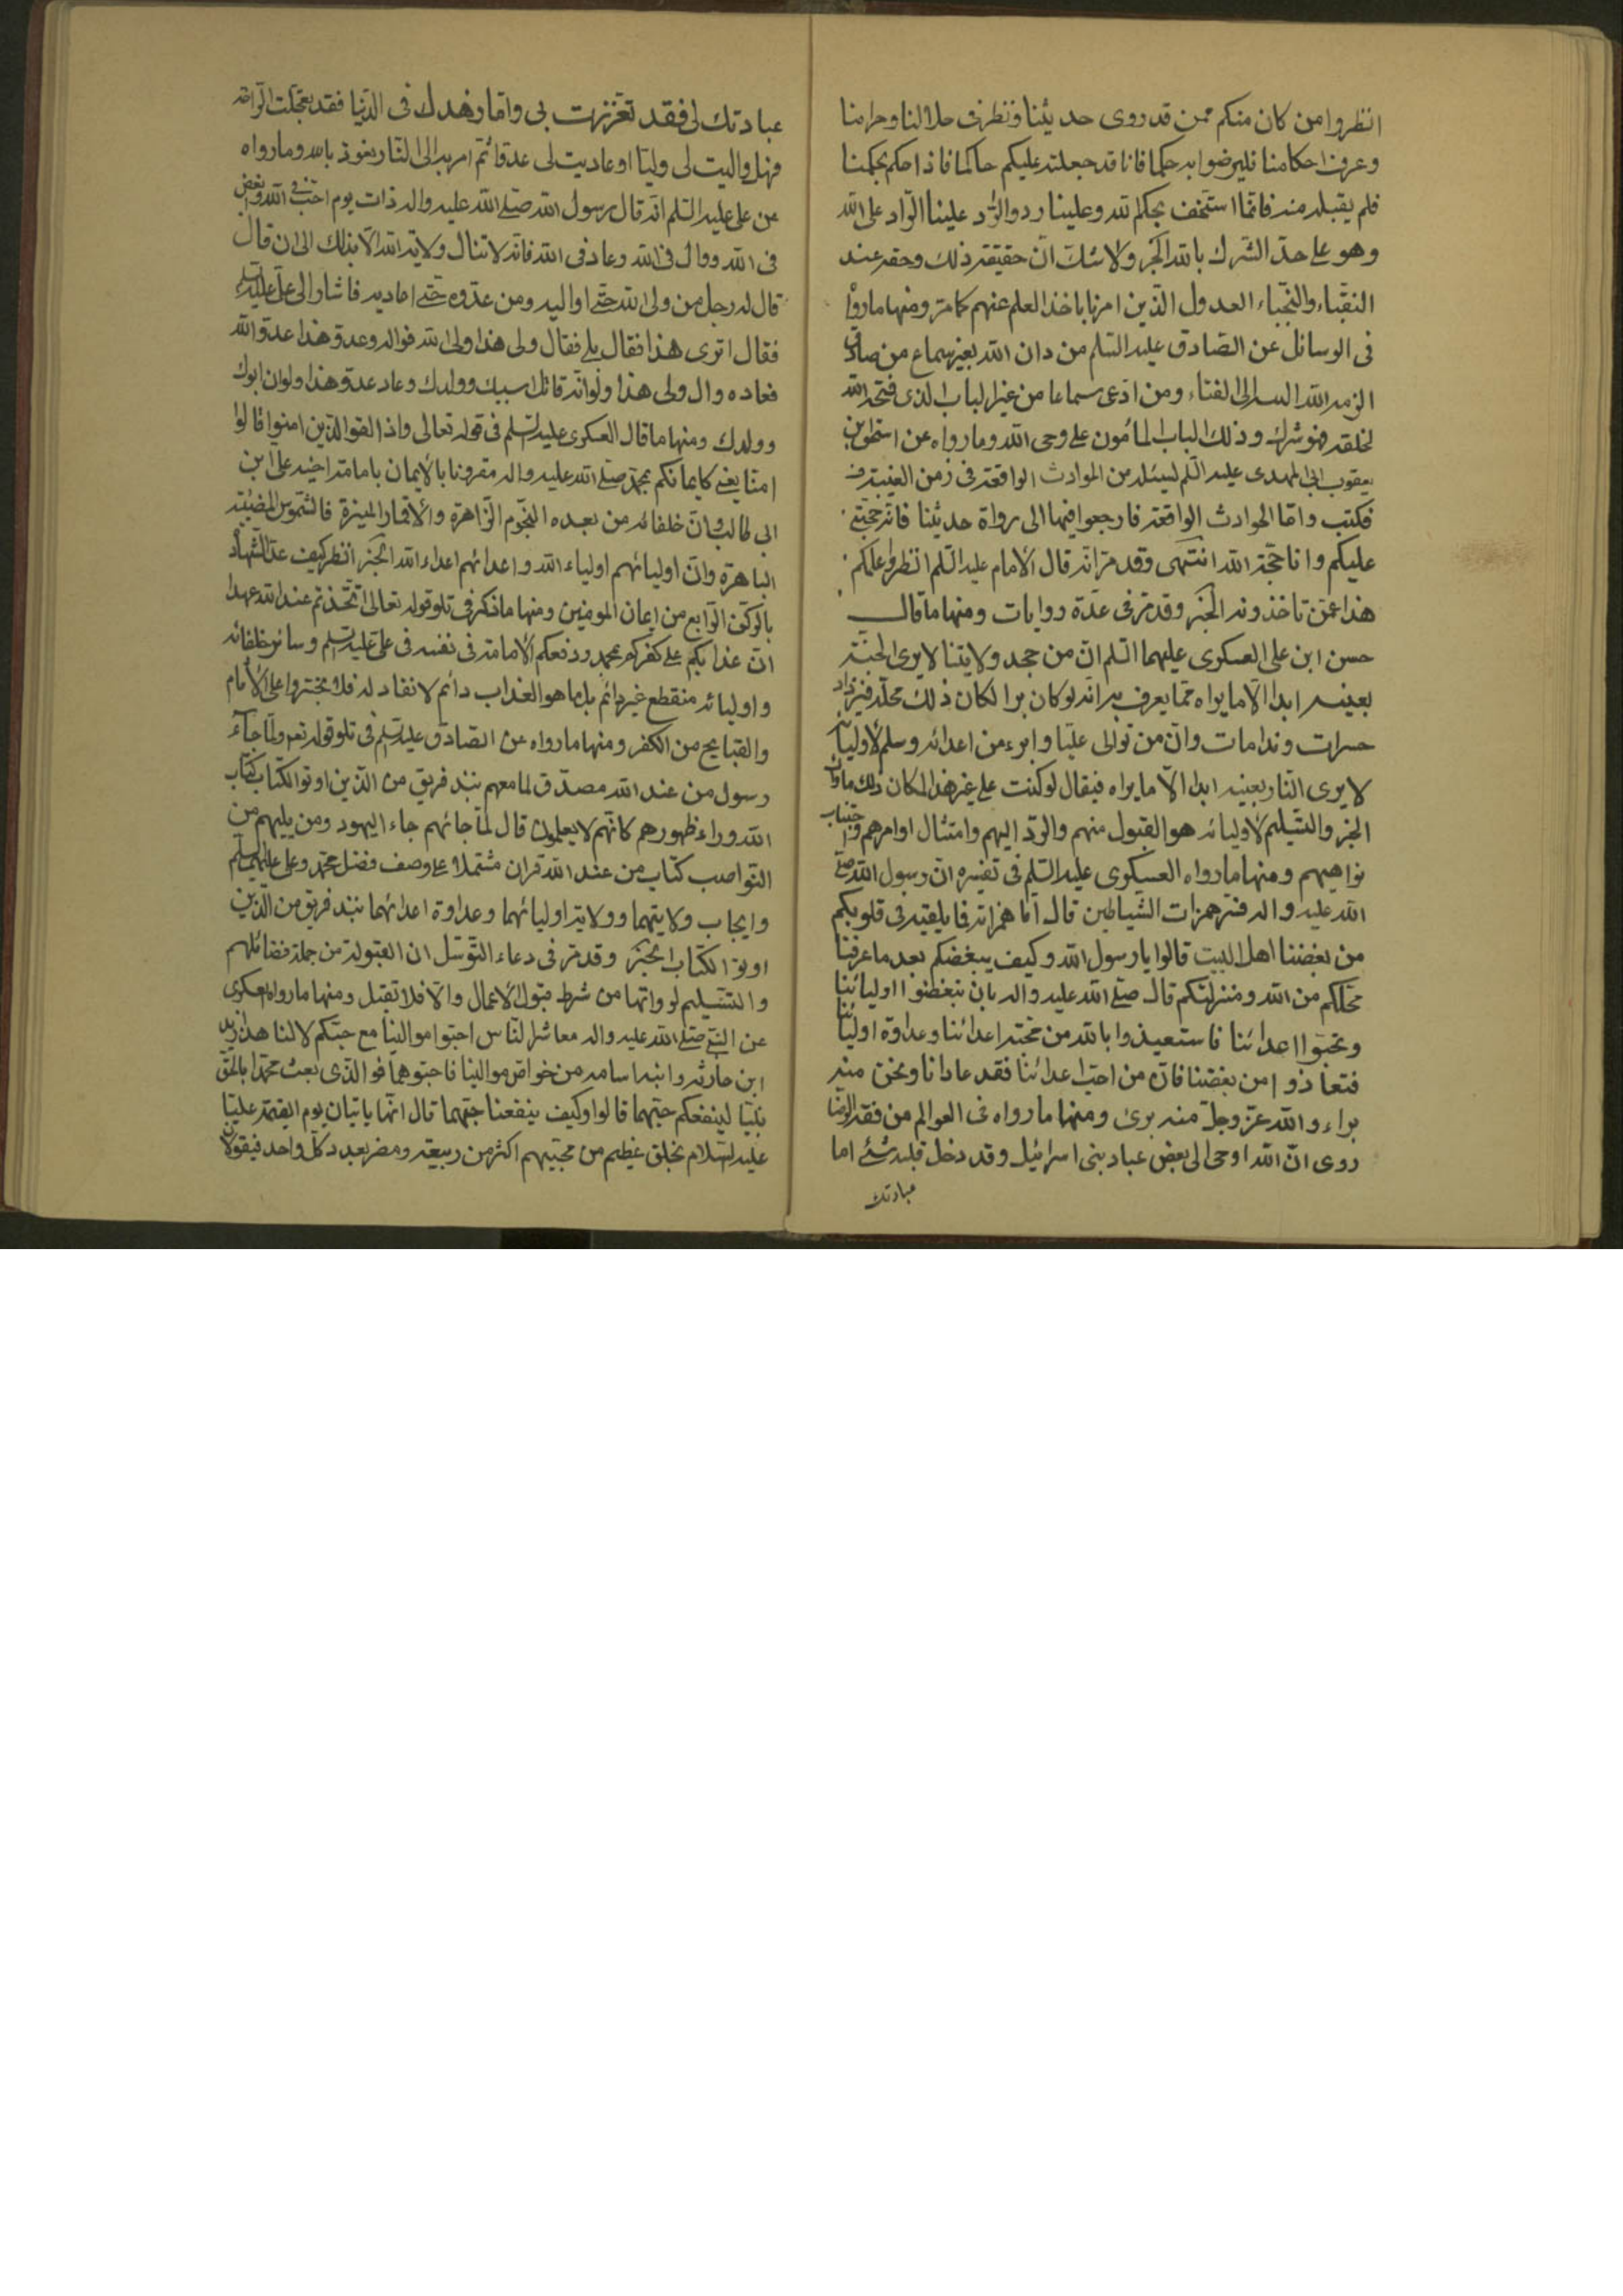 انظروا من كان منكم ممن قد روى حديثنا ونظر فى حلالنا وحرامنا
وعرف احكامنا فليرضوا به حكما فانا قد جعلته عليكم حاكما فاذا حكم بحكمنا
فلم يقبله منه فانما استخف بحكم الله وعلينا رد والراد علينا الراد على الله
وهو على حد الشرك بالله الخبر ولا شك ان حقيقة ذلك وحقه عند
النقباء والنجباء العدول الذين امرنا باخذ العلم عنهم كما مر ومنها ما رووا
فى الوسائل عن الصادق عليه السلم من دان الله بغير سماع من صادق
الزمه الله الى الفناء ومن ادعى سماعا من غير الباب الذى فتحه الله
لخلقه فهو شرك وذلك الباب المأمون على وحى الله وما رواه عن اسحق بن
يعقوب الى المهدى عليه السلم ليسئله من الحوادث الواقعة فى زمن الغيبة
فكتب واما الحوادث الواقعة فارجعوا فيها الى رواة حديثنا فانه حجتى
عليكم وانا حجة الله انتهى وقد مر انه قال الامام عليه السلم انظروا علمكم
هذا عمن تاخذونه الخبر وقد مر فى عدة روايات ومنها ما قال
حسن ابن على العسكرى عليهما السلم ان من جحد ولايتنا لا يرى الجنة
بعينه ابدا الا ما يراه مما يعرف به انه لو كان برا لكان ذلك محله فيزداد
حسرات وندامات وان من توالى عليا وابرء من اعدائه وسلم لاوليائه
لا يرى النار بعينه ابدا الا ما يراه فيقال لو كنت على غير هذا لكان ذلك ماواك
الخبر والتسليم لاوليائه هو القبول منهم والرد اليهم وامتثال اوامرهم واجتناب
نواهيهم ومنها ما رواه العسكرى عليه السلم فى تفسيره ان رسول الله صلى
الله عليه واله فسر همزات الشياطين قال اما همزاته فما يلقيه فى قلوبكم
من بغضنا اهل البيت قالوا يا رسول الله وكيف يبغضكم بعد ما عرفنا
محلكم من الله ومنزلتكم قال صلى الله عليه واله بان تبغضوا اوليائنا
وتحبوا اعدائنا فاستعيذوا بالله من محبة اعدائنا وعداوة اوليائنا
فتعاذوا من بغضنا فانه من احب اعدائنا فقد عادانا ونحن منه
براء والله عز وجل منه برئ ومنها ما رواه فى العوالم من فقه الرضا
روى ان الله اوحى الى بعض عباد بنى اسرائيل وقد دخل قلبه شئ اما
عبادتك
عبادتك لى فقد تعززت بى واما زهدك فى الدنيا فقد تعجلت الراحة
فهل واليت لى وليا او عاديت لى عدوا ثم امر به الى النار نعوذ بالله وما رواه
عن على عليه السلم انه قال رسول الله صلى الله عليه واله ذات يوم احب فى الله وابغض
فى الله ووال فى الله وعاد فى الله فانه لا تنال ولاية الله الا بذلك الى ان قال
قال له رجل من ولى الله حتى اواليه ومن عدوه حتى اعاديه فاشار الى على عليه السلم
فقال اترى هذا فقال بلى فقال ولى هذا ولى الله فواله وعدو هذا عدو الله
فعاده وال ولى هذا ولو انه قاتل ابيك وولدك وعاد عدو هذا ولو ان ابوك
وولدك ومنها ما قال العسكرى عليه السلم فى قوله تعالى واذا لقوا الذين امنوا قالوا
امنا يعنى كايمانكم بمحمد صلى الله عليه واله مقرونا بالايمان بامامة اخيه على ابن
ابى طالب وان خلفائه من بعده النجوم الزاهرة والاقمار المنيرة والشموس المضيئة
الباهرة وان اوليائهم اولياء الله واعدائهم اعداء الله الخبر انظر كيف عد الشهادة
بالركن الرابع من ايمان المومنين ومنها ما ذكر فى تلو قوله تعالى اتخذتم عند الله عهدا
ان عذابكم على كفركم بمحمد ودفعكم الامامة فى نفسه فى على عليه السلم وسائر خلفائه
واوليائه منقطع غير دائم بل ما هو الا لعذاب دائم لا نفاد له فلا تجتروا على الاثام
والقبايح من الكفر ومنها ما رواه عن الصادق عليه السلم فى تلو قوله تعم ولما جاء
رسول من عند الله مصدق لما معهم نبذ فريق من الذين اوتوا الكتاب كتاب
الله وراء ظهورهم كانهم لا يعلمون قال لما جائهم جاء اليهود ومن يليهم من
النواصب كتاب من عند الله قران مشتملا على وصف فضل محمد وعلى عليهما السلم
وايجاب ولايتهما وولاية اوليائهما وعداوة اعدائهما نبذ فريق من الذين
اوتوا الكتاب الخبر وقد مر فى دعاء التوسل ان القبول من جملة فضائلهم
والتسليم لو وانها من شرط قبول الاعمال والا فلا تقبل ومنها ما رواه العسكرى
عن النبى صلى الله عليه واله معاشر الناس احبوا موالينا مع حبكم لالنا هذا زيد
ابن حارثه وابنه اسامه من خواص موالينا فاحبوهما فو الذى بعث محمدا بالحق
نبيا لينفعكم حبهما قالوا وكيف ينفعنا حبهما قال انهما ياتيان يوم القيمة عليا
عليه السلام بخلق عظيم من محبيهم اكثر من ربيعة ومضر بعدد كل واحد فيقولان